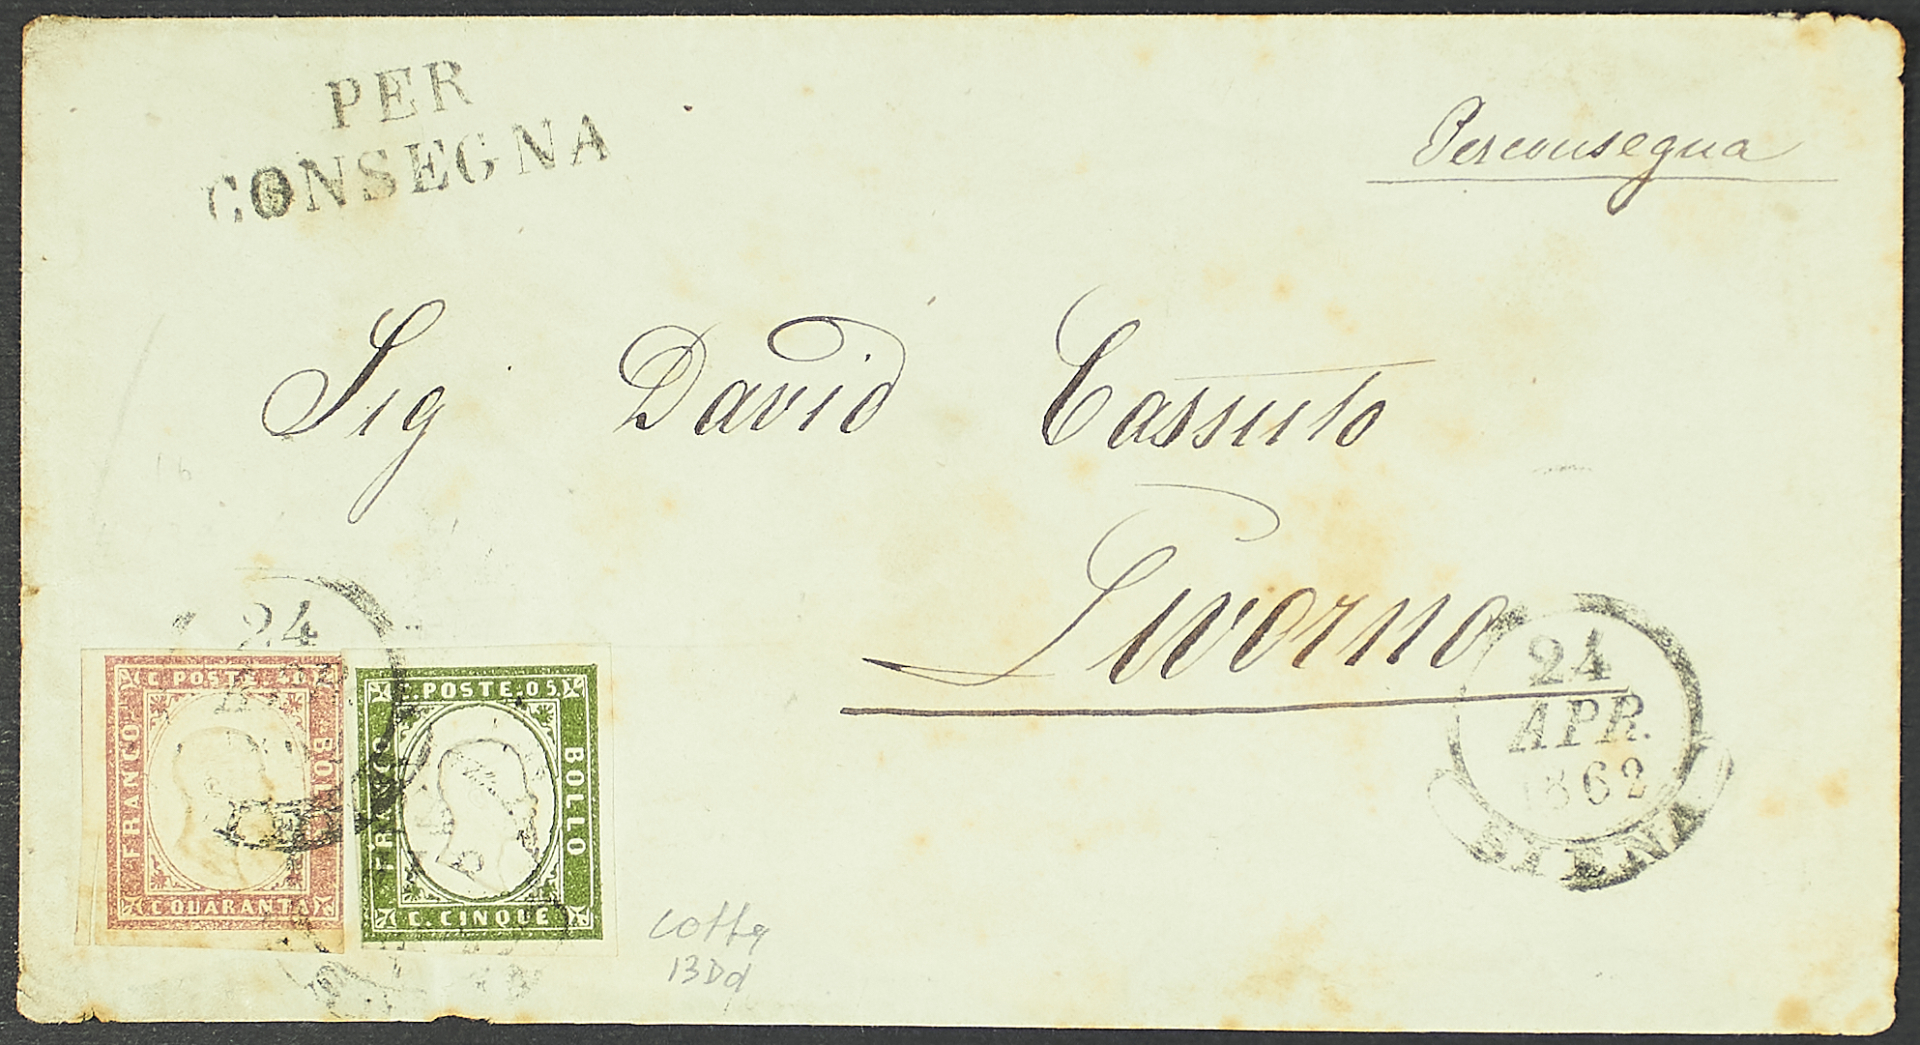 PER
CONSEGNA
Perconsegna
Sig David Cassuto
Livorno
24
APR.
1862
SIENA
24
C. POSTE. 40
FRANCO
BOLLO
C. QUARANTA
C. POSTE. 05.
FRANCO
BOLLO
C. CINQUE
13Dd